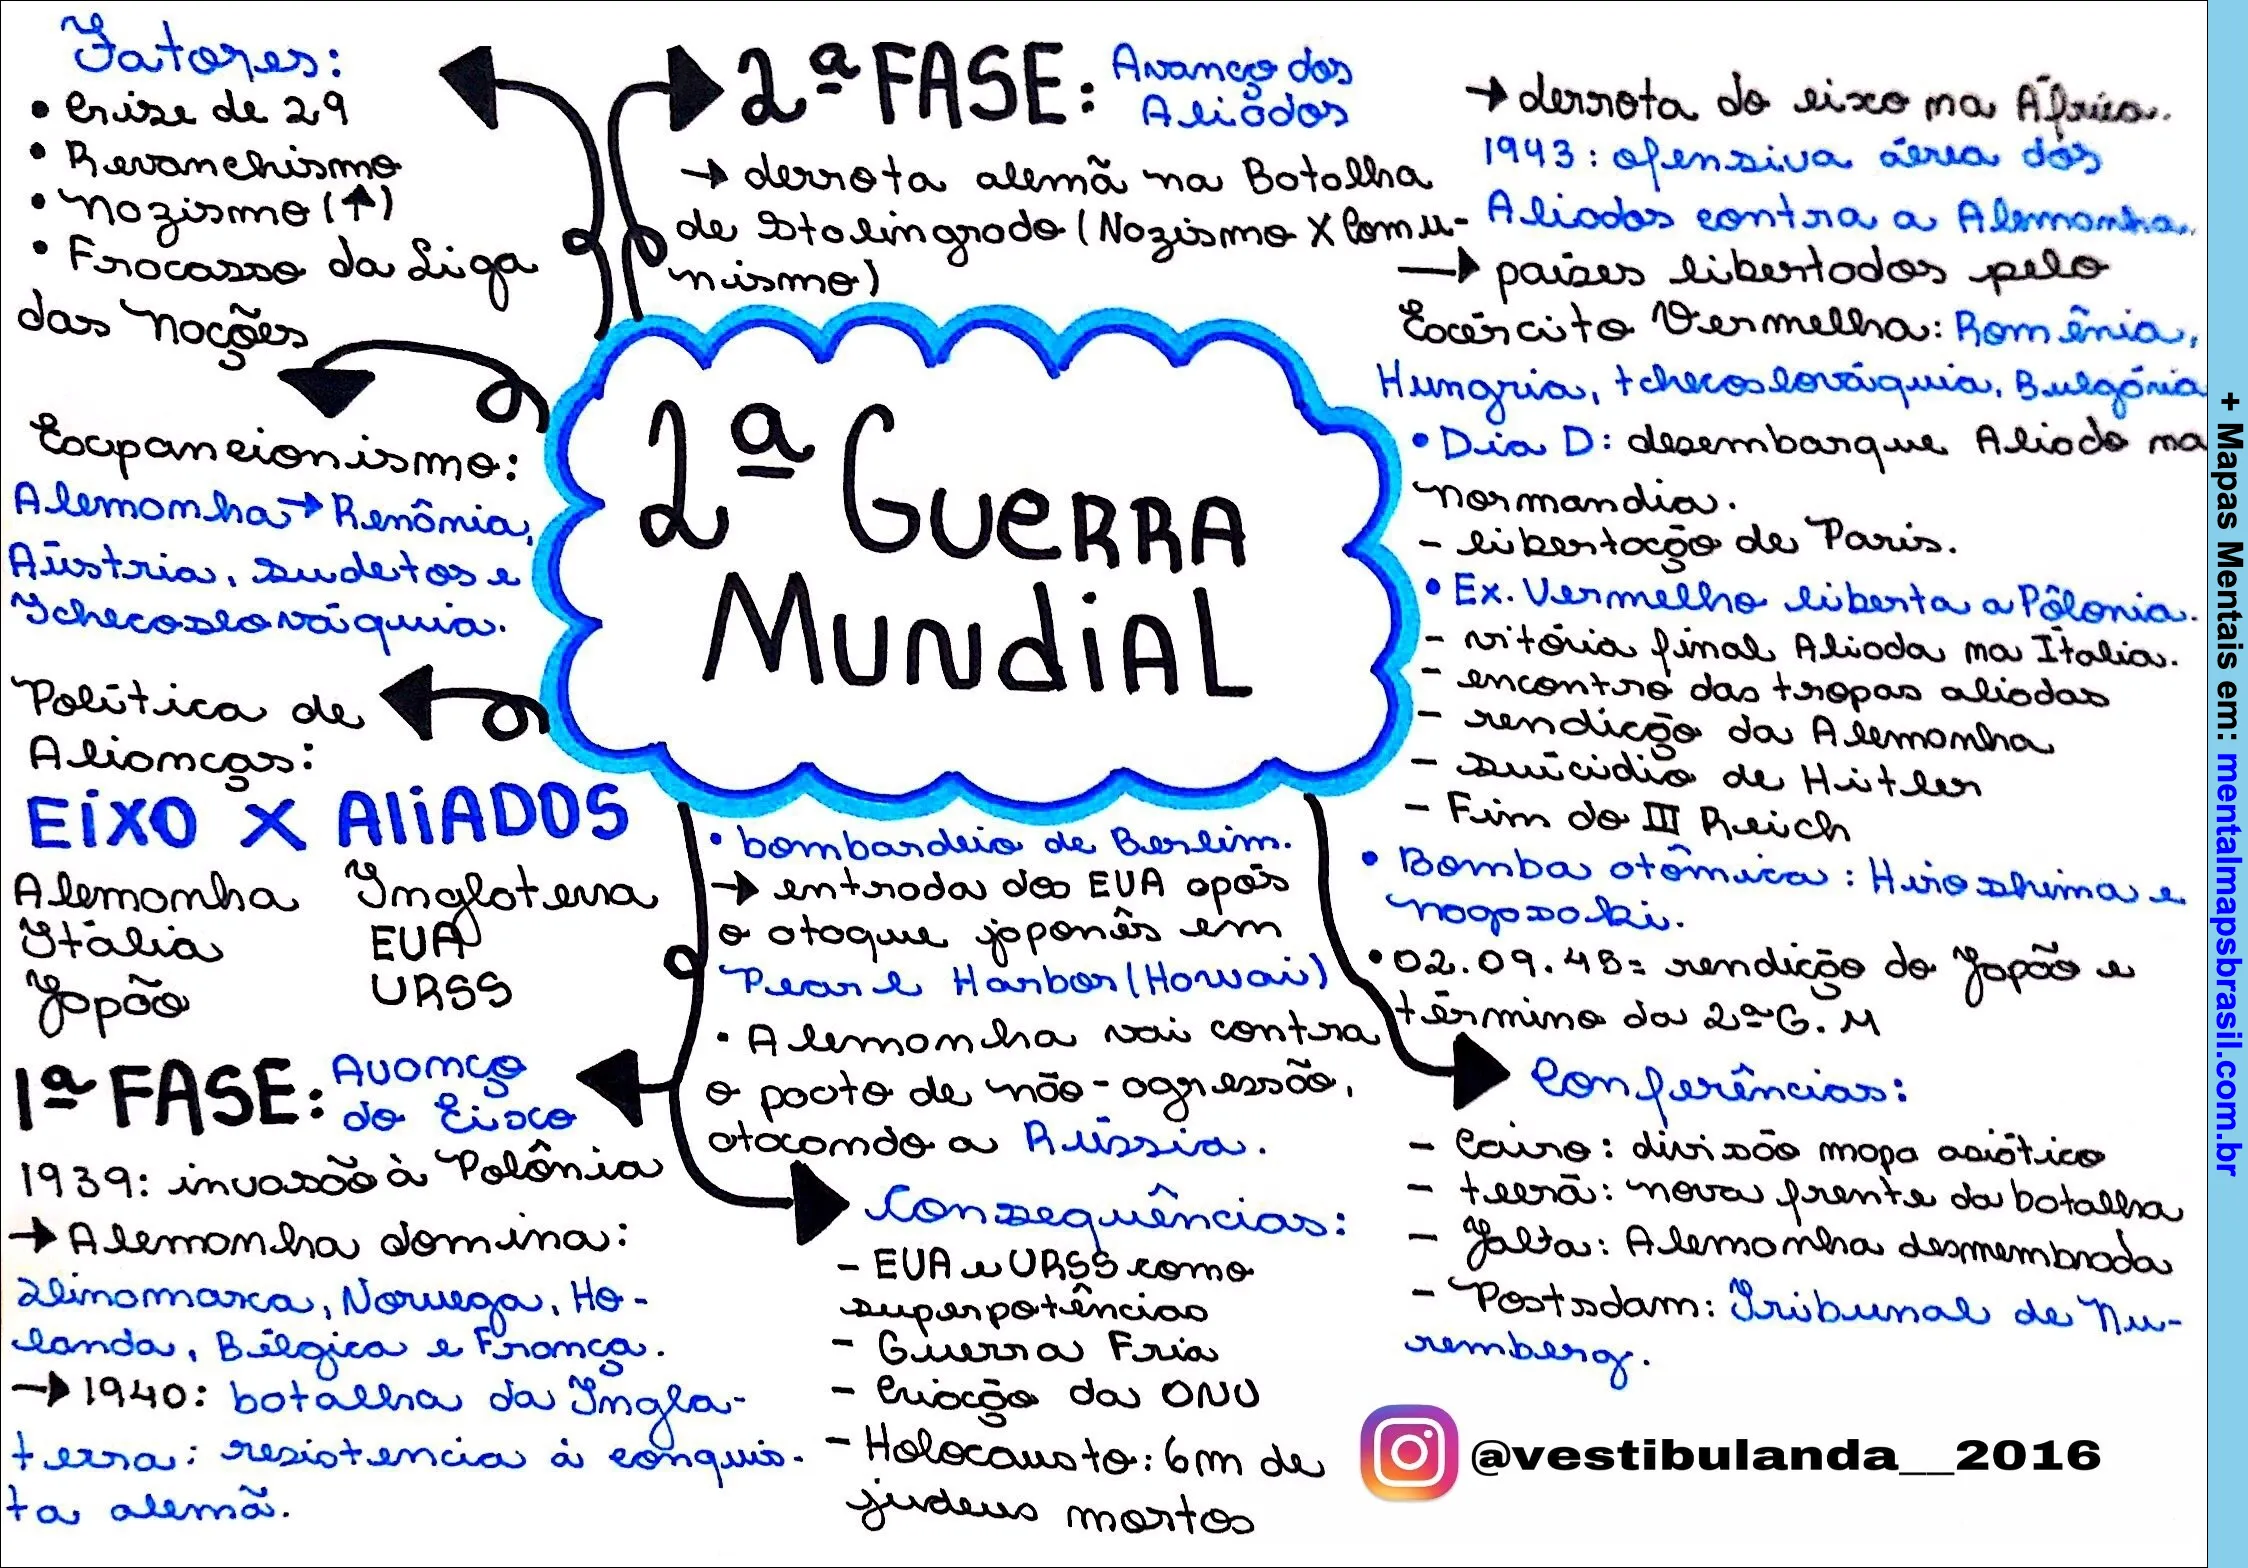 Fatores:
• Crise de 29
• Revanchismo
• Nazismo (↑)
• Fracasso da Liga
das Nações
Expancionismo:
Alemanha → Renânia,
Áustria, sudetos e
Tchecoslováquia.
Política de
Alianças:
EIXO X ALIADOS
Alemanha Inglaterra
Itália EUA
Japão URSS
1ª FASE: Avanço
do Eixo
1939: invasão à Polônia
→ Alemanha domina:
Dinamarca, Noruega, Ho-
landa, Bélgica e França.
→ 1940: batalha da Ingla-
terra: resistencia à conquis-
ta alemã.
2ª Guerra
Mundial
• bombardeio de Berlim.
→ entrada dos EUA após
o ataque japonês em
Pearl Harbor (Hawai)
• Alemanha vai contra
o pacto de não-agressão,
atacando a Rússia.
Consequências:
- EUA e URSS como
superpotências
- Guerra Fria
- Criação da ONU
- Holocausto: 6m de
judeus mortos
2ª FASE: Avanço dos
Aliados
→ derrota alemã na Batalha
de Stalingrado (Nazismo X Comu-
nismo)
→ derrota do eixo na África.
1943: ofensiva aérea dos
Aliados contra a Alemanha.
→ países libertados pelo
Exército Vermelho: Romênia,
Hungria, tchecoslováquia, Bulgária
• Dia D: desembarque Aliado na
Normandia.
- libertação de Paris.
• Ex. Vermelho liberta a Pôlonia.
- vitória final Aliada na Itália.
- encontro das tropas aliadas
- rendição da Alemanha
- suícidio de Hitler
- Fim do III Reich
• Bomba atômica: Hiroshima e
Nagasaki.
• 02.09.45= rendição do Japão e
término da 2ª G. M
Conferências:
- Cairo: divisão mapa asiático
- teerã: nova frente da batalha
- Yalta: Alemanha desmembrada
- Postsdam: Tribunal de Nu-
remberg.
@vestibulanda__2016
+ Mapas Mentais em: mentalmapsbrasil.com.br